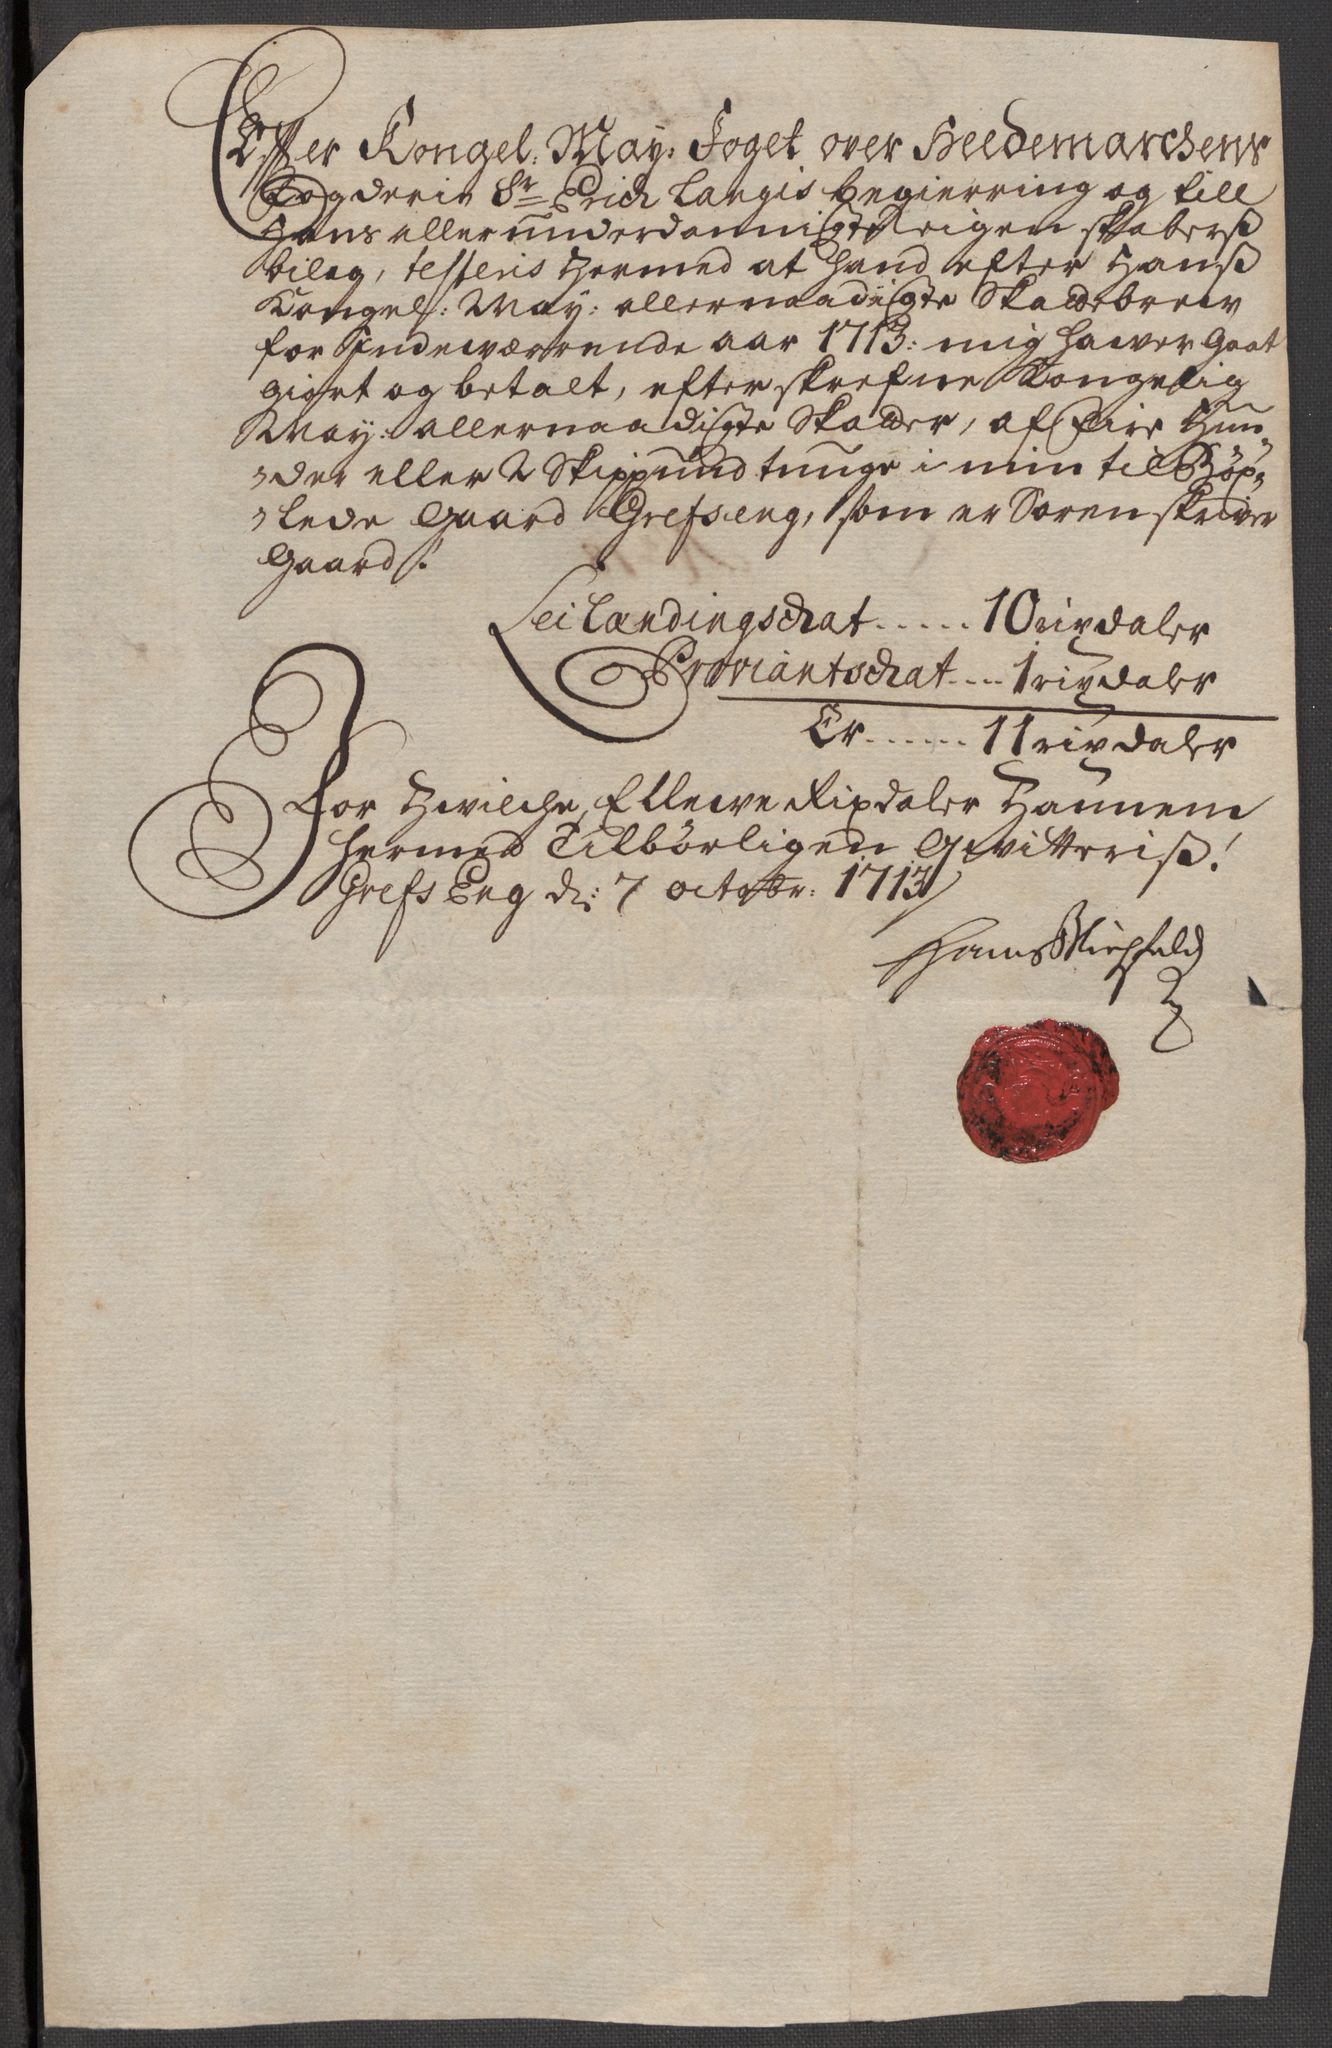 Efter Kongel: May: Foget over Heedemarchens
Fogderie Sr Erich Langis begierring og till
Hans allerunderdannigste reigenskabers
bilag, testeris Hermed at hand efter Hanß
Kongel: May: allernaadigste Skattebrew
for Indewærrende aar 1713: mig hawer Gaat
giort og betalt, efterskrefne Kongelig
May: allernaadigste Skatter, af fire Hun-
der eller 2 Skippund tunge i min tilhør-
lede Gaard Grefseng, som er Sorenskriver
Gaard!
Leilændingschat ..... 10 rixdaler
Proviantschat .... 1 rixdaler
Er ...... 11 rixdaler
For Hvilche, Ellewe Rixdaler Hannem
hermed Tilbörligen Qvitteriß!
GrefsEng d: 7 octobr: 1713
Hans